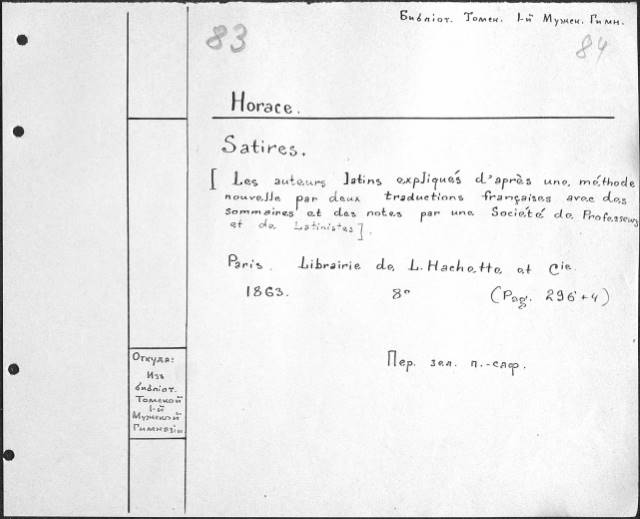 Библіот. Томск. 1-й Мужск. Гимн.
83
84
Horace.
Satires.
[Les auteurs latins expliqués d'après une méthode
nouvelle par deux traductions françaises avec des
sommaires et des notes par une Société de Professeurs
et de Latinistes].
Paris. Librairie de L. Hachette et Cie.
1863. 8° (Pag. 296+4)
Откуда:
Изъ
библіот.
Томской
1-й
Мужской
Гимназіи
Пер. зел. п.-саф.